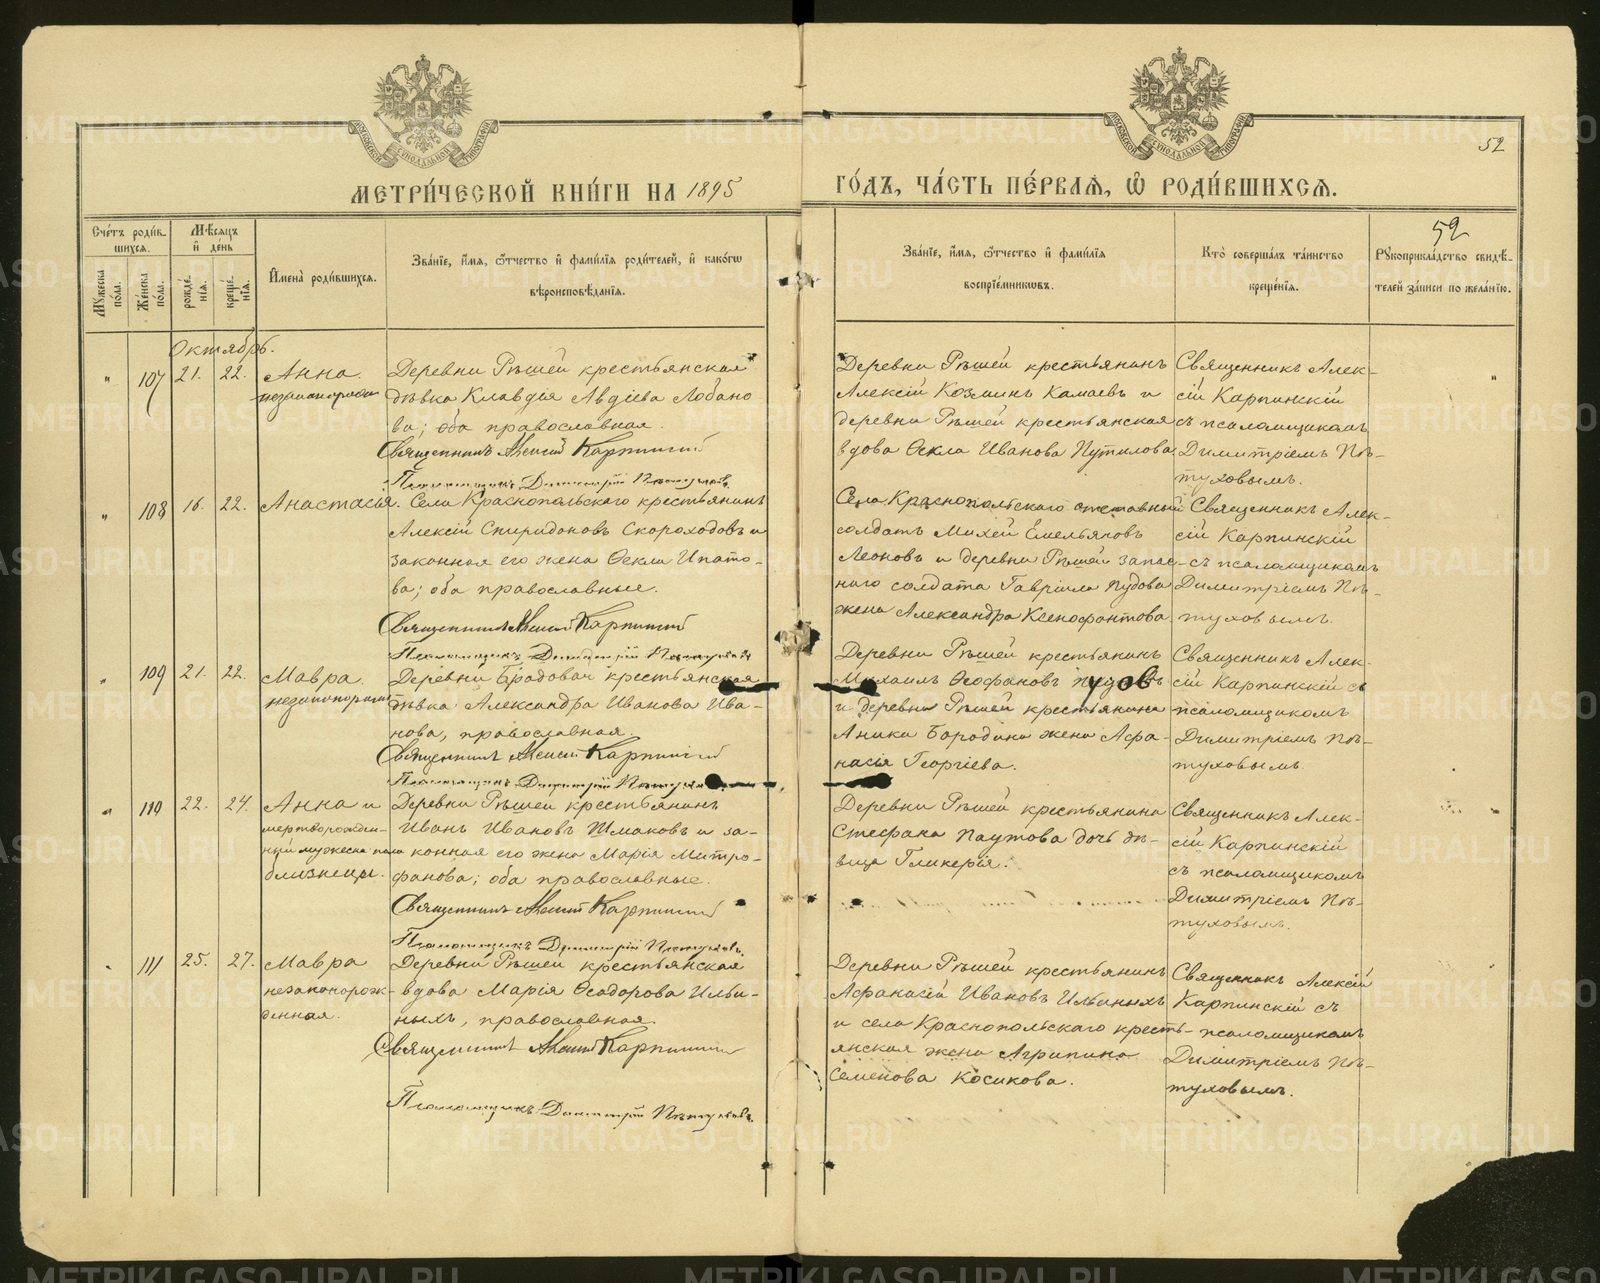 52
МЕТРИ́ЧЕСКОЙ КНИ́ГИ НА 1895
ГО́ДЪ, ЧА́СТЬ ПЕ́РВАЯ, Ѡ РОДИ́ВШИХСЯ.
52
Сче́тъ роди́в-
шихся.
Мѣ́сяцъ
и҆ де́нь
Му́жеска
по́ла.
Же́нска
по́ла.
рожде́-
нїя.
креще́-
нїя.
И҆мена̀ роди́вшихся.
Зва́нїе, и҆́мя, ѻ҆́тчество и҆ фамѝлїя роди́телей, и҆ како́гѡ
вѣроисповѣ́данїя.
Зва́нїе, и҆́мя, ѻ҆́тчество и҆ фамѝлїя
воспрїе́мникѡвъ.
Кто̀ соверша́лъ та́инство
креще́нїя.
Рꙋкоприкла́дство свидѣ́-
телей за́писи по жела́нїю.
Октябрь.
" 107 21. 22. Анна
незаконорожд
Деревни Рѣшей крестьянская
дѣвка Клавдія Авдіева Лобано
ва; оба православная.
Священникъ Алексій Карпинскій
Псаломщикъ Димитрій Пѣтуховъ.
Деревни Рѣшей крестьянинъ
Алексій Козминъ Камаевъ и
деревни Рѣшей крестьянская
вдова Ѳекла Иванова Путилова
Священникъ Алек-
сій Карпинскій
съ псаломщикомъ
Димитріемъ Пѣ-
туховымъ.
" 108 16. 22. Анастасія.
Села Краснопольскаго крестьянинъ
Алексій Спиридоновъ Скороходовъ и
законная его жена Ѳекла Ипато-
ва; оба православные.
Священникъ Алексій Карпинскій
Псаломщикъ Димитрій Пѣтуховъ
Села Краснопольскаго отставный
солдатъ Михей Емельяновъ
Леоновъ и деревни Рѣшей запас-
наго солдата Гавріила Пудова
жена Александра Ксенофонтова.
Священникъ Алек-
сій Карпинскій
съ псаломщикомъ
Димитріемъ Пѣ-
туховымъ.
" 109 21. 22. Мавра.
незаконорожд
Деревни Брадовой крестьянская
дѣвка Александра Иванова Ива-
нова, православная.
Священникъ Алексій Карпинскій
Псаломщикъ Димитрій Пѣтуховъ
Деревни Рѣшей крестьянинъ
Михаилъ Ѳеофановъ
и деревни Рѣшей крестьянина
Аники Бородина жена Аѳа-
насія Георгіева.
Священникъ Алек-
сій Карпинскій съ
псаломщикомъ
Димитріемъ Пѣ-
туховымъ.
" 110 22. 24. Анна и
мертворожден-
ный мужеска пола
близнецы.
Деревни Рѣшей крестьянинъ
Иванъ Ивановъ Шмаковъ и за-
конная его жена Марія Митро-
фанова; оба православные.
Священникъ Алексій Карпинскій
Псаломщикъ Димитрій Пѣтуховъ.
Деревни Рѣшей крестьянина
Стефана Паутова дочь дѣ-
вица Гликерія.
Священникъ Алек-
сій Карпинскій
съ псаломщикомъ
Димитріемъ Пѣ-
туховымъ.
" 111 25. 27. Мавра
незаконорож-
денная.
Деревни Рѣшей крестьянская
вдова Марія Ѳеодорова Ильи-
ныхъ, православная.
Священникъ Алексій Карпинскій
Псаломщикъ Димитрій Пѣтуховъ.
Деревни Рѣшей крестьянинъ
Аѳанасій Ивановъ Ильиныхъ
и села Краснопольскаго кресть-
янская жена Агрипина
Семенова Косикова.
Священникъ Алексій
Карпинскій съ
псаломщикомъ
Димитріемъ Пѣ-
туховымъ.
METRIKI.GASO-URAL.RU